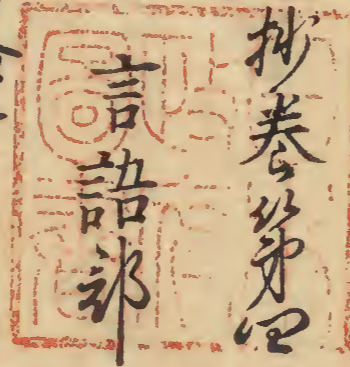 抄巻第四
言語部